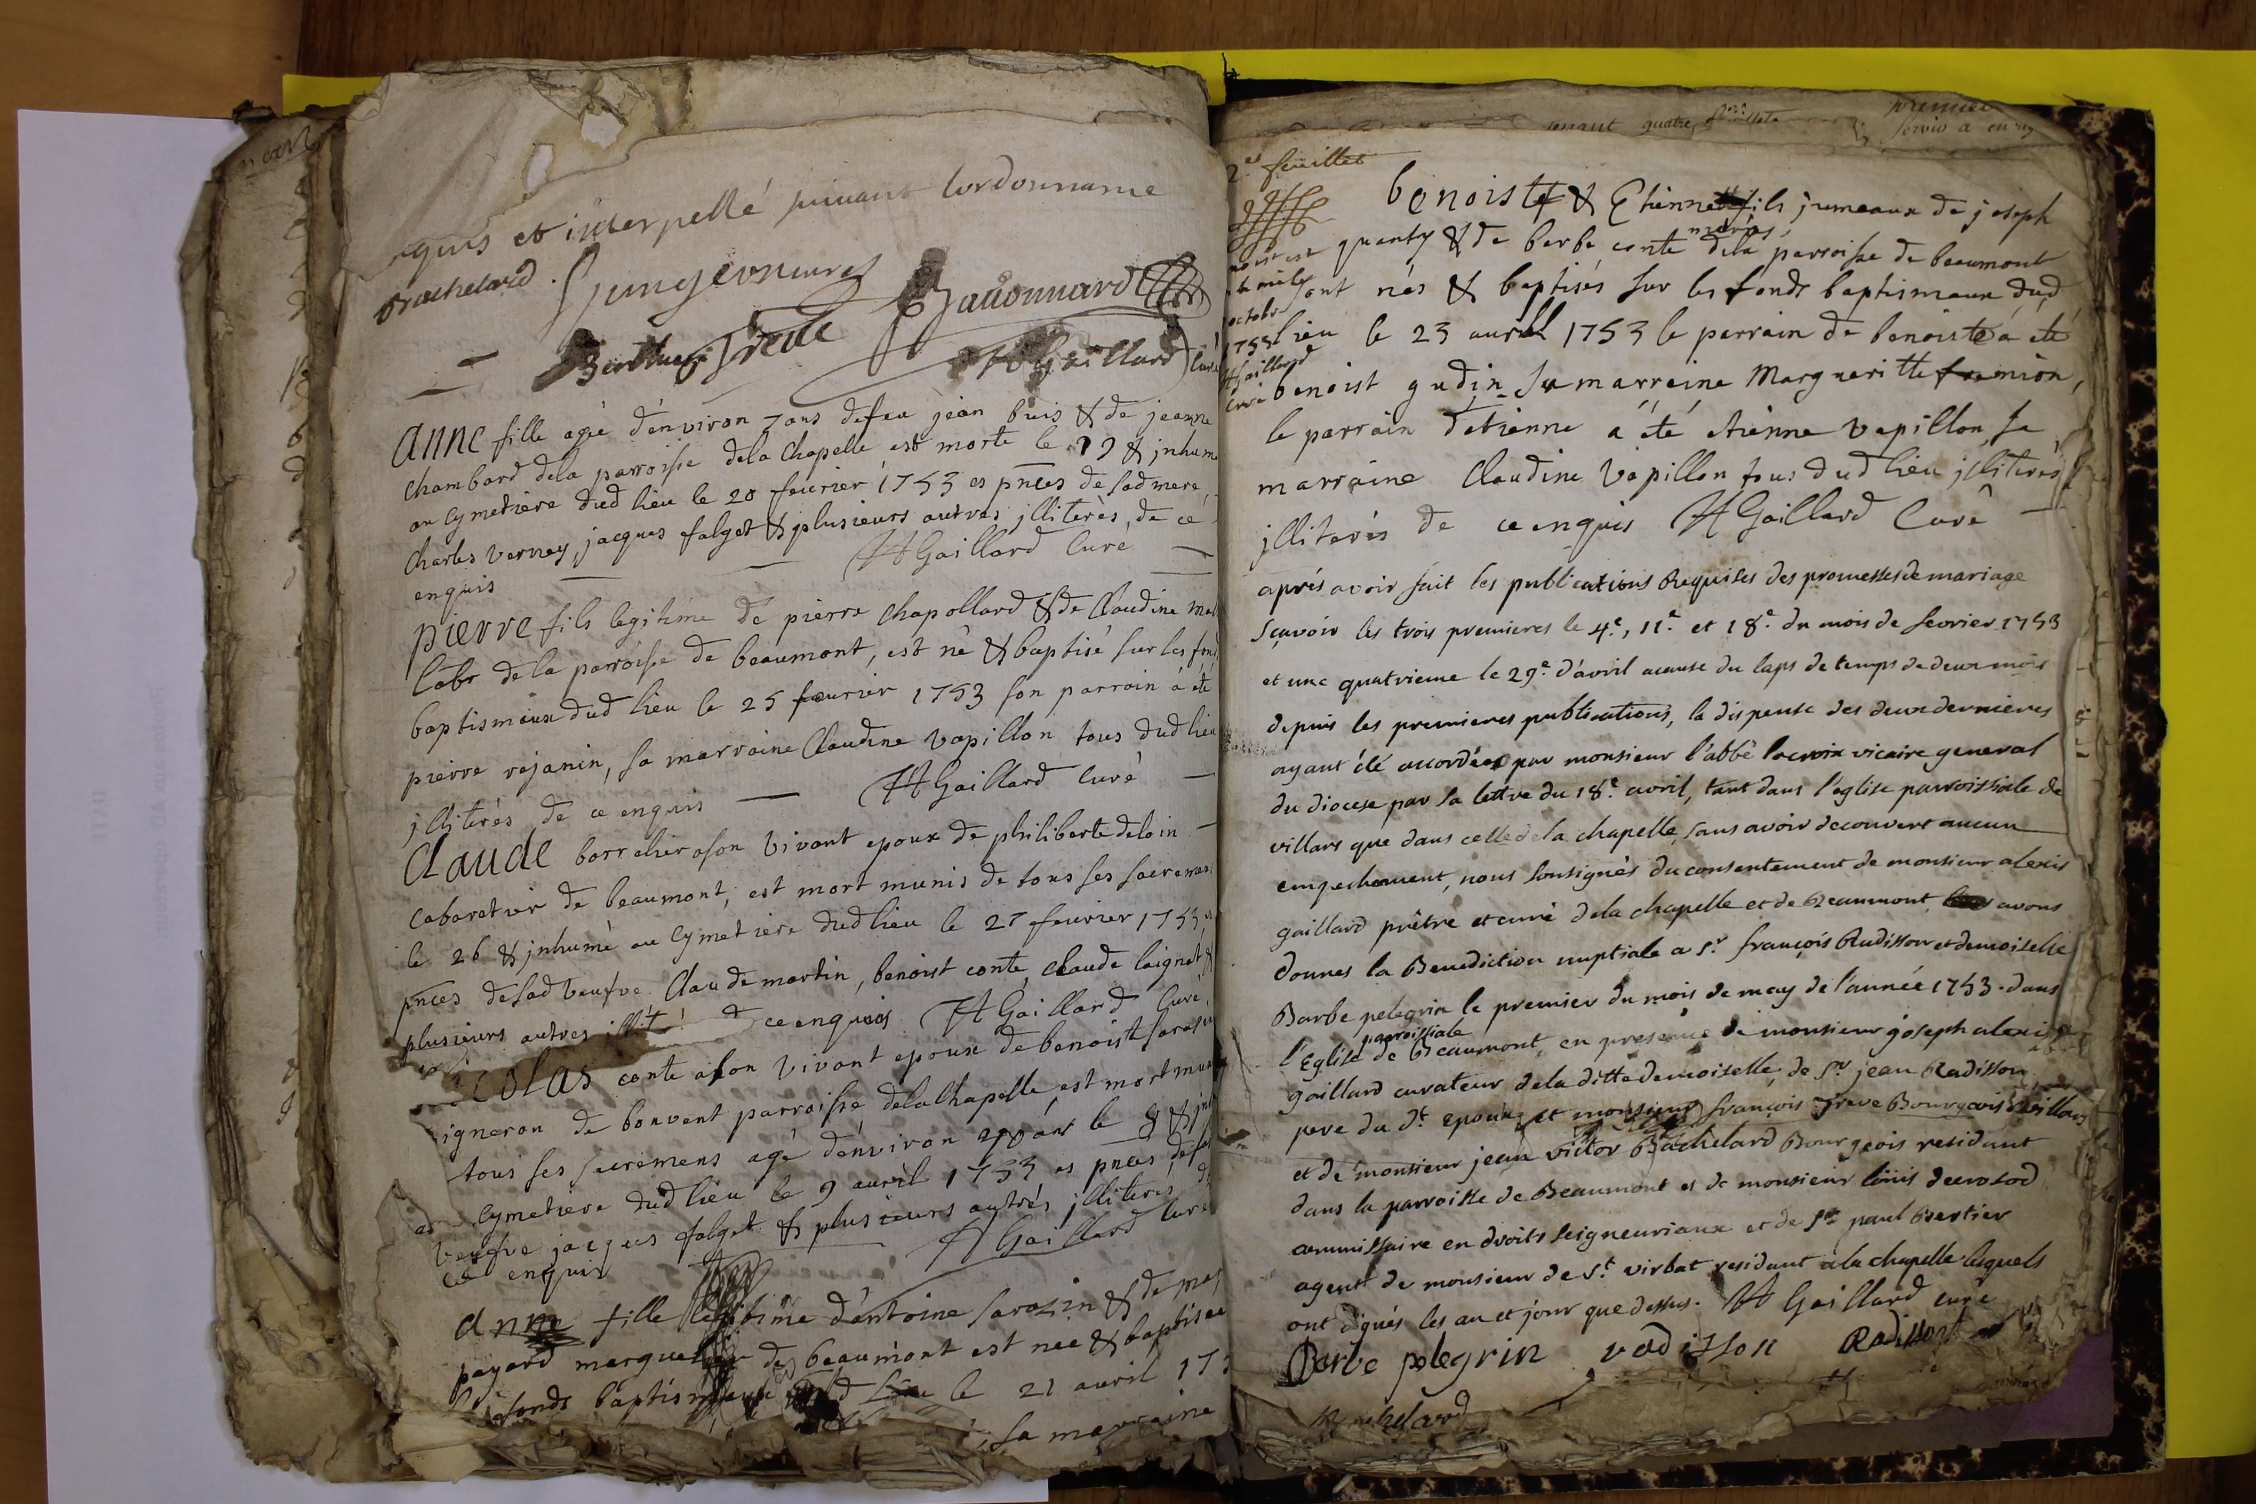 quis et interpellé suivant lordonnance
Bachelard
Berthier Greve
AGaillard Curé
anne fille agée d'environ 7 ans defeu jèan buis & de jeanne
chambard dela parroisse dela chapelle est morte le 19 & jnhumé
au cymetière dud lieu le 20 feurier 1753 es pnces de sad mere,
charles vernay, jacques falget & plusieurs autres jlliterès, de ce
enquis AGaillard Curé
pierre fils legitime de pierre chapollard & de Claudine
labr de la parroisse de beaumont, est né & baptisé sur les
baptismaux dud lieu le 25 feurier 1753 son parrain à été
pierre rejanin, sa marraine Claudine vapillon tous dud lieu
jlliterès de ce enquis AGaillard Curè
Claude borrelier ason vivant epoux de philiberte deloin
cabaretier de beaumont, est mort munis de tous ses sacremens
le 26 & jnhumé au cymetiere dud lieu le 27 feurier 1753
pnces desad veufve, Claude martin, benoist conte, claude loignet &
plusieurs autres de ce enquis AGaillard Curé
colas conte ason vivant epoux de benoiste sarasin
igneron de bonvent parroisse dela chapelle est mort
tous ses sacremens agé d'environ ans le 8 &
cymetiere dud lieu le 9 auril 1753 es pnces de
veufve jacques falget & plusieurs autrés jlliteres
ce enquis AGaillard Curé
anne fille legitime d'antoine sarazin & de
payard de beaumont est née & baptisée
fonds baptismaux le 21 auril
sa marraine
2e feuillet
benoiste & Etienne fils jumeaux de joseph
quanty & de barbe conte mariés dela parroisse de beaumont
sont nés & baptisés sur les fonds baptismaux dud
lieu le 23 auril 1753 le parrain de benoiste a eté
benoist gudin sa marreine Margueritte fremion,
le parrain d'etienne a été etiènne vapillon, sa
marraine Claudine vapillon tous dud lieu jlliterés
jlliterés de ce enquis AGaillard Curê
octobre
1755
AGaillard
curé
aprés avoir fait les publications Requises des promesses de mariage
sçavoir les trois premieres le 4e, 11e et 18e du mois de fevrier 1753
et une quatrieme le 29e d'avril acause du laps de temps de deux mois
depuis les premieres publications, la dispense des deux dernieres
ayant été accordée par monsieur l'abbé lacroix vicaire general
du diocese par sa lettre du 18e avril, tant dans l'eglise parroissiale de
villars que dans celle de la chapelle, sans avoir decouvert aucun
empechement, nous soussignés du consentement de monsieur alexis
gaillard prêtre et curé dela chapelle et de Beaumont avons
donnés la Benediction nuptiale a sr françois Radisson et demoiselle
Barbe pelegrin le premier du mois de may de l'année 1753. dans
l'Eglise parroissiale de Beaumont, en presence de monsieur joseph alexis
gaillard curateur dela ditte demoiselle, de sr jean Radisson
pere du dt epoux, et monsieur françois Greve Bourgeois villars
et de monsieur jean victor Bachelard Bourgeois residant
dans la parroisse de Beaumont et de monsieur loüis decrosod
commissaire en droits seigneuriaux et de sr paul Bertier
agent de monsieur de st virbat residant ala chapelle lesquels
ont signés les an et jour que dessus. AGaillard curé
Barbe pelegrin radisson Radisson
Bachelard